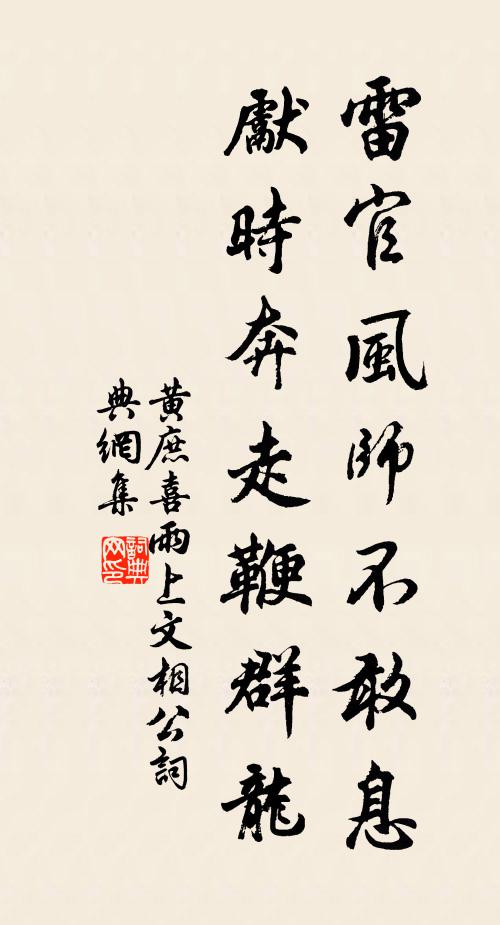 雷官風師不敢息
獻時奔走鞭群龍
黃庶喜雨上文相公詞
典網集
詞典
网印